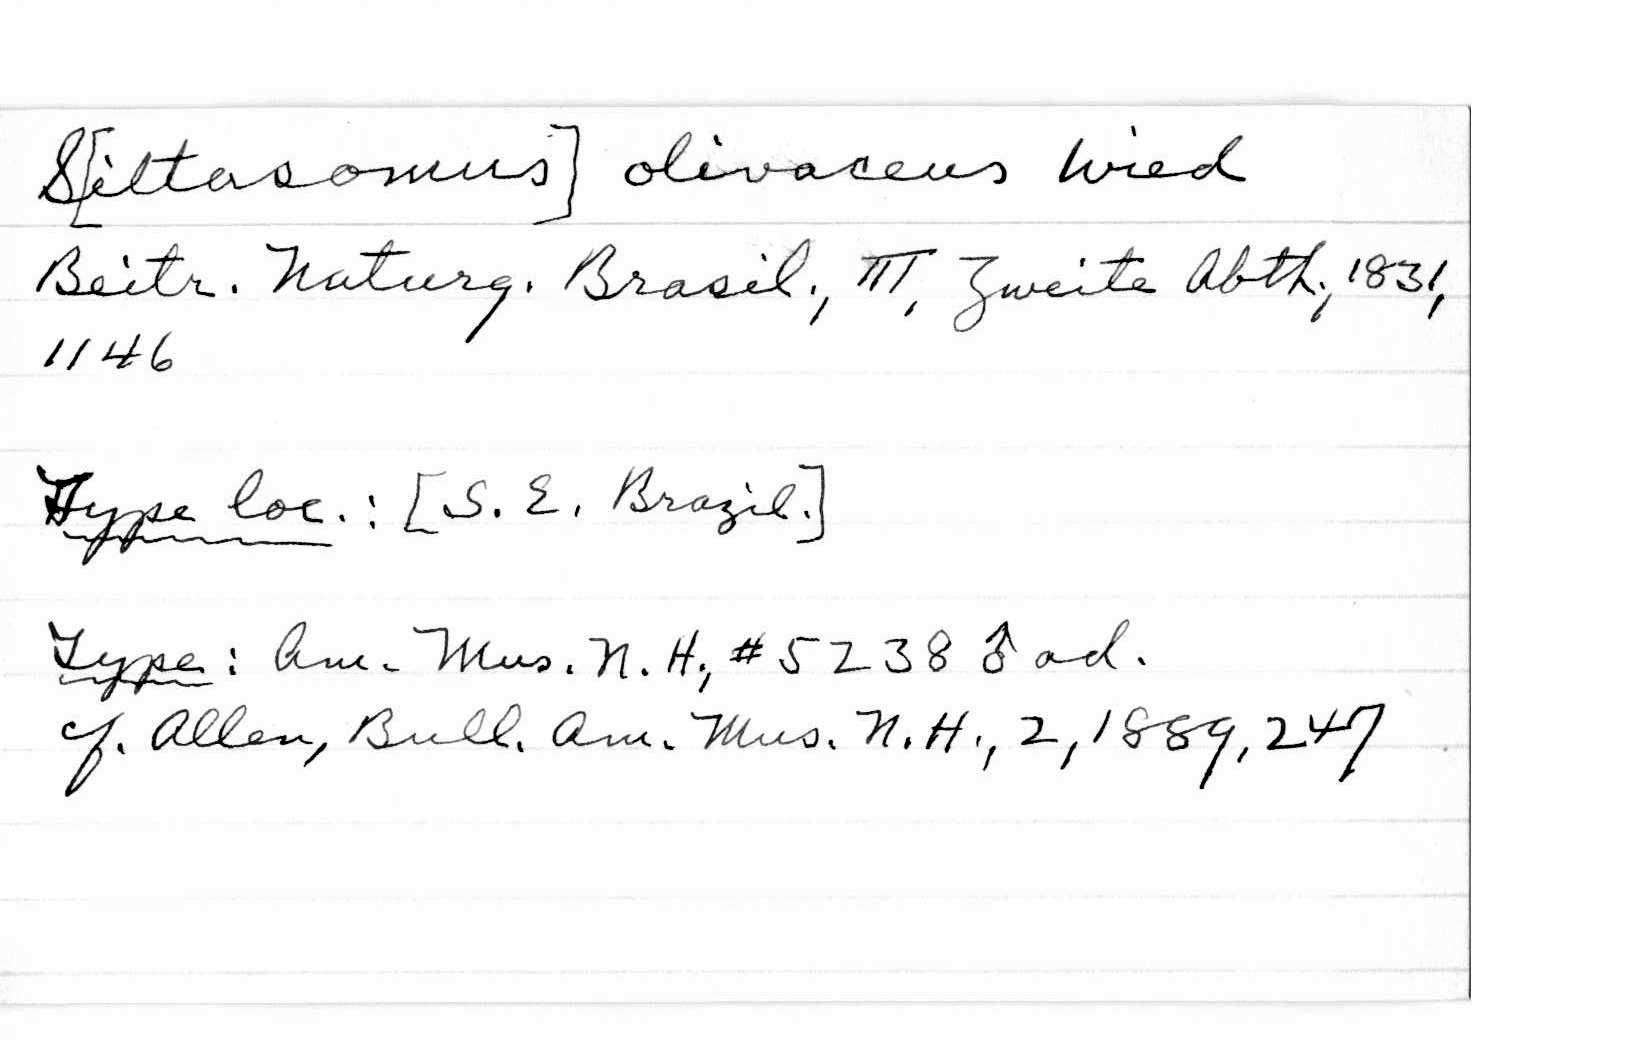 S[ittasomus] olivaceus Wied
Beitr. Naturg. Brasil., III, Zweite Abth., 1831,
1146
Type loc.: [S. E. Brazil.]
Type: Am. Mus. N. H., #5238 ♂ ad.
cf. Allen, Bull. Am. Mus. N. H., 2, 1889, 247